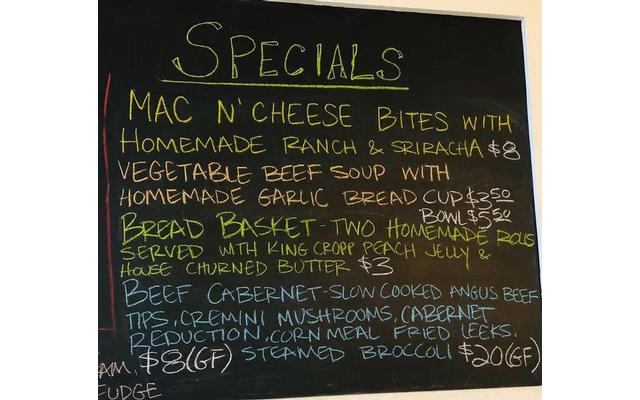 SPECIALS
MAC N' CHEESE BITES WITH
HOMEMADE RANCH & SRIRACHA $8
VEGETABLE BEEF SOUP WITH
HOMEMADE GARLIC BREAD CUP $3.50
BOWL $5.50
BREAD BASKET - TWO HOMEMADE ROLLS
SERVED WITH KING CROPP PEACH JELLY &
HOUSE CHURNED BUTTER $3
BEEF CABERNET - SLOW COOKED ANGUS BEEF
TIPS, CREMINI MUSHROOMS, CABERNET
REDUCTION, CORNMEAL FRIED LEEKS.
STEAMED BROCCOLI $20 (GF)
AM, $8 (GF)
FUDGE